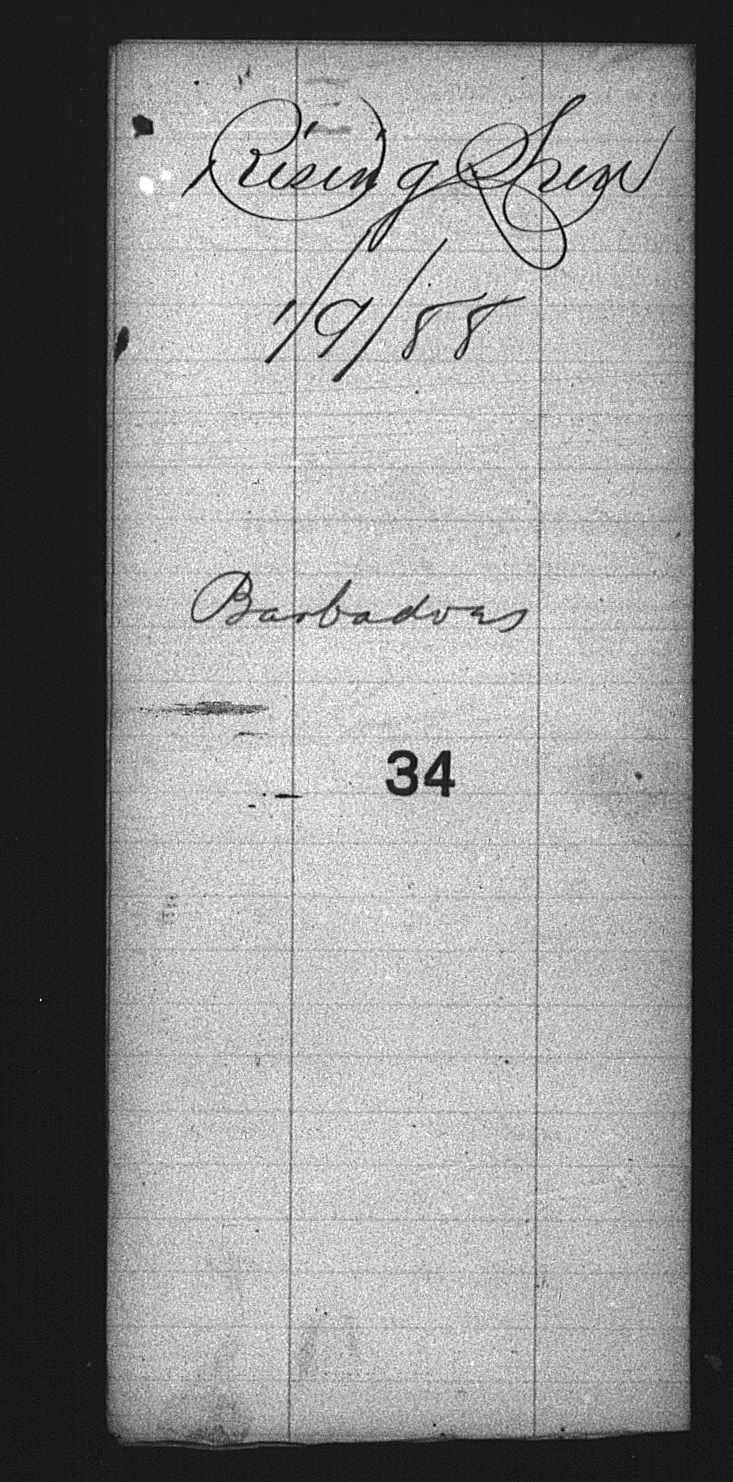 Rising Sun
1/9/88
Barbadoes
34